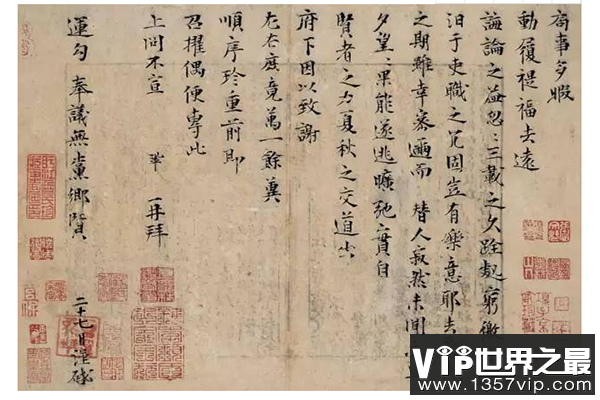 局事多暇
動履禔福去遠
誨論之益忽〻三載之久跧處窮徼
汨于吏職之冗固豈有樂意耶去
之期雖幸密邇而替人寂然未聞
夕望〻果能遂逃曠弛實自
賢者之力夏秋之交道出
府下因以致謝
左右庶竟萬一餘冀
順序珍重前即
召擢偶便專此
上問不宣 鞏 再拜
運勾 奉議無黨鄉賢
二十七日謹啓
VIP世界之最
www.1357vip.com